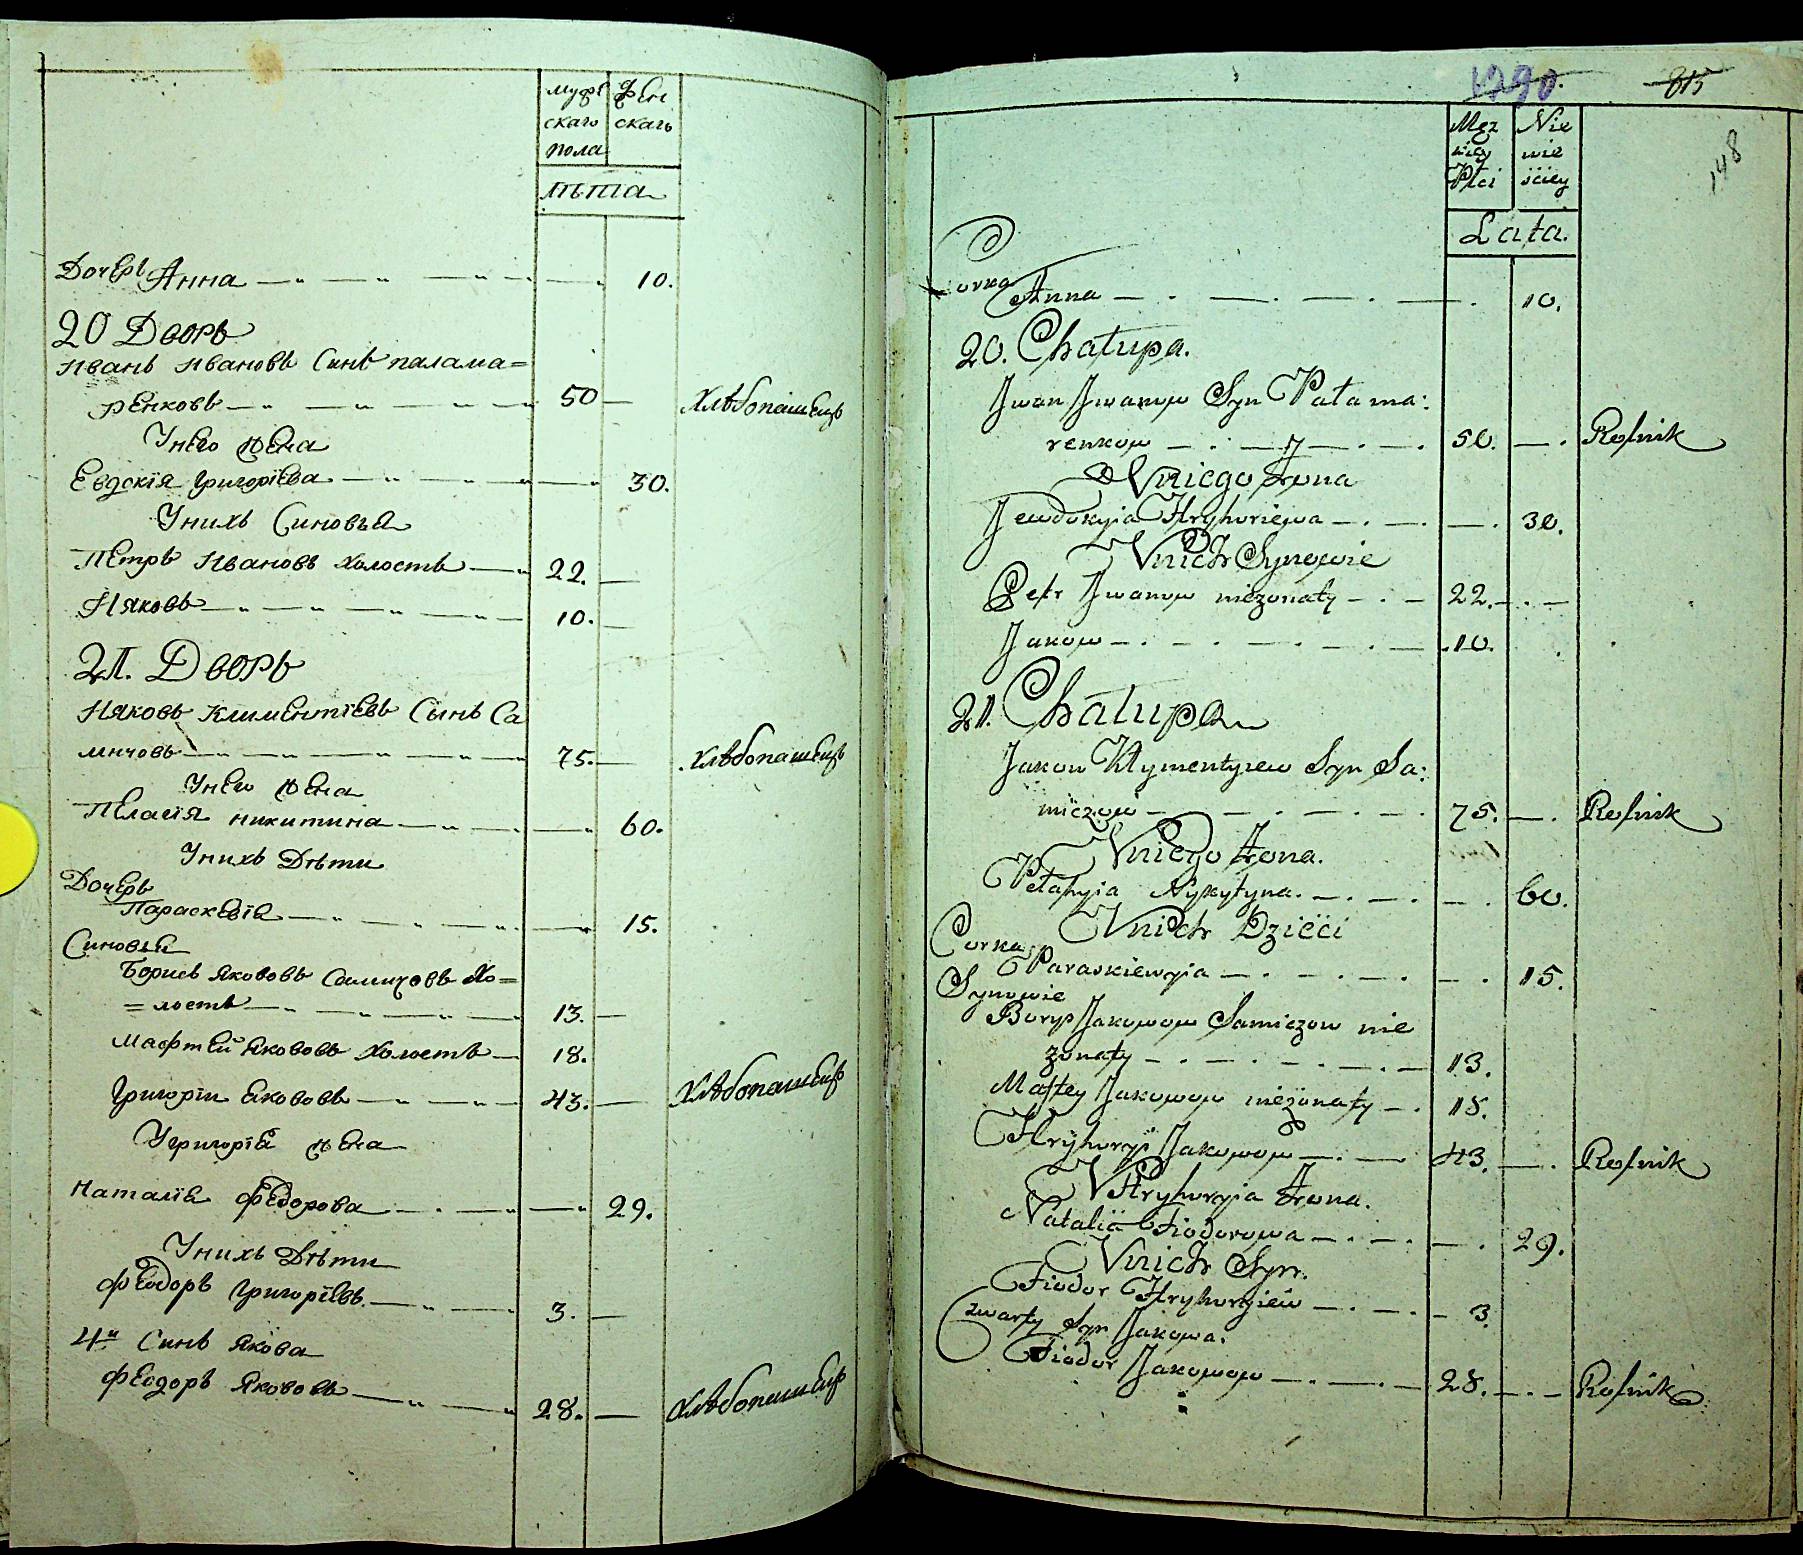 мужε
скаго
пола
жен
скагъ
лѣта
Дочерь Анна 10.
20 Дворъ
Иванъ Ивановъ Синъ палама=
ренковъ 50 — Хлѣбопашецъ
Унего жена
Евдокія Григоріева 30.
Унихъ Синовья
Петръ Ивановъ холостъ 22. —
Ияковъ 10. —
21. Дворъ
Ияковъ Климентіевъ Сынъ Са
мичовъ 75. — Хлѣбопашецъ
Унего жена
Пелагія никитина 60.
Унихъ Дѣти
Дочерь
Параскевія 15.
Синовья
Борисъ Якововъ Самичовъ Хо=
=лостъ 13. —
Мафтей Якововъ Холостъ 18.
Григорій Якововъ 43. — Хлѣбопашецъ
Угригорія жена
Наталія Федорова 29.
Унихъ Дѣти
Феодоръ Григоріевъ 3. —
4й Синъ Якова
Феодоръ Яковов 28. — Хлѣбопашецъ
1790. 815
148
Męz
kiey
Płci
Nie
wie
sciey
Lata.
Corka Anna 10.
20. Chałupa.
Jwan Jwanow Syn Pałama:
renkow 50. — Rolnik
Vniego Zona
Jewdokyia Hryhoriewa 30.
Vnich Synowie
Petr Jwanow niezonaty 22.
Jakow 10.
21. Chałupa
Jakow Klymentyiew Syn Sa:
miczow 75. — Rolnik
Vniego Zona.
Pełahyia Nykytyna. 60.
Vnich Dzieci
Corka
Paraskiewyia 15.
Synowie
Borys Jakowow Samiczow nie
zonaty 13.
Maftey Jakowow niezonaty 18.
Hryhoryi Jakowow 43. — Rolnik
VHryhoryia Zona.
Natalia Fiodorowa 29.
Vnich Syn.
Fiodor Hryhoryiew 3.
Czwarty Syn Jakowa.
Fiodor Jakowow 28. — Rolnik